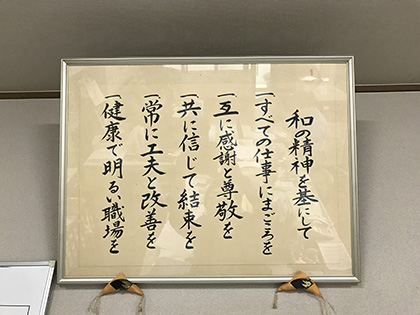 和の精神を基にして
一すべての仕事にまごころを
一互に感謝と尊敬を
一共に信じて結束を
一常に工夫と改善を
一健康で明るい職場を